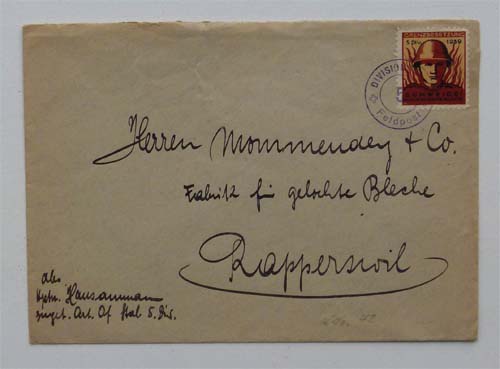 GRENZBESETZUNG
5. Div. 1939
SCHWEIZ
DIVISION
5
Feldpost
Herren Mommendey & Co.
Fabrik für gelochte Bleche
Rapperswil
Abs
Hptm. Hausammann
zuget. Art. Of Stab 5. Div.